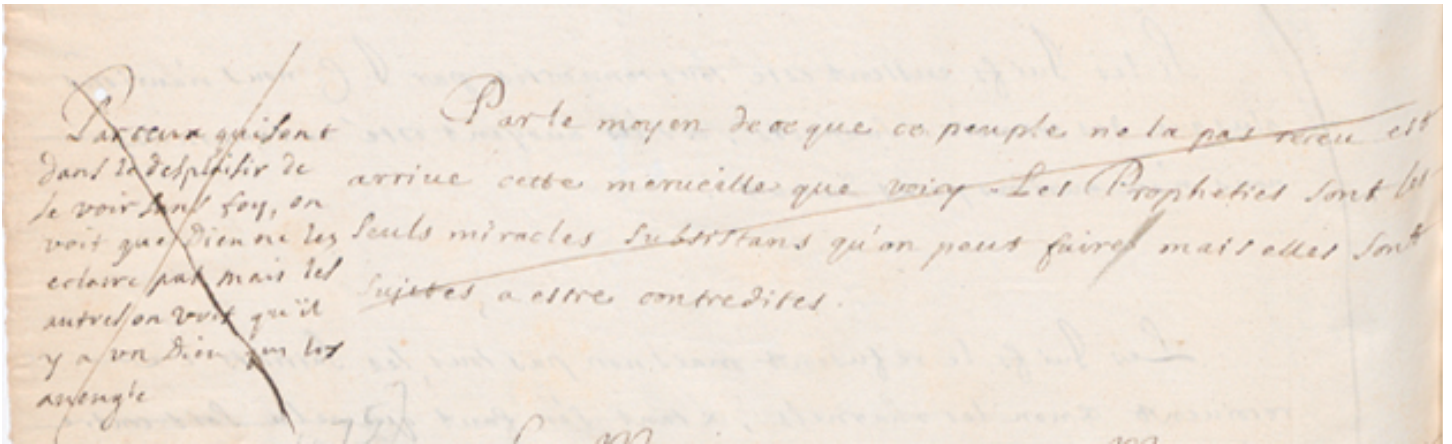 Par ceux qui sont
dans le desplaisir de
se voir sans foy, on
voit que Dieu ne les
eclaire pas mais les
autres on voit qu'il
y a un Dieu qui les
aveugle
Par le moyen de ce que ce peuple ne la pas receu est
arrive cette merveille que voicy. Les Propheties sont les
seuls miracles subsistans qu'on peut faire mais elles sont
sujetes, a estre contredites.